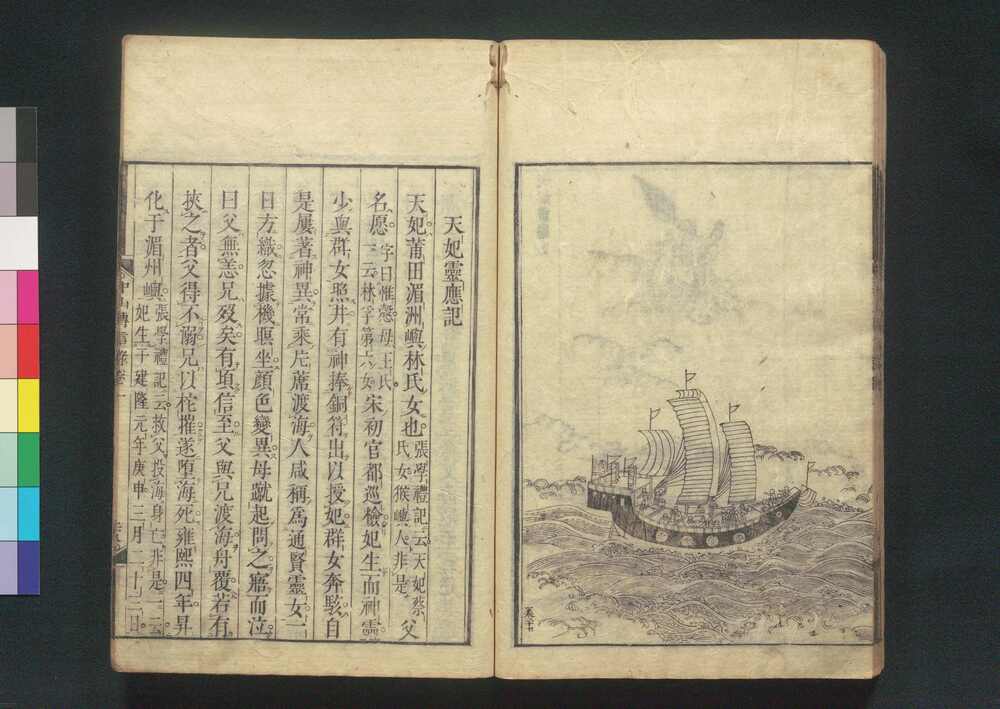 天妃靈應記
天妃莆田湄洲嶼林氏女也張學禮記云天妃蔡氏女猴嶼人非是父
名愿字曰惟慤母王氏一云林孚第六女宋初官都巡檢妃生而神靈
少與群女照井有神捧銅符出以授妃群女奔駭自
是屢著神異常乘片蓆渡海人咸稱爲通賢靈女一
日方織忽據機瞑坐顔色變異母蹴起問之寤而泣
曰父無恙兄歿矣有頃信至父與兄渡海舟覆若有
挾之者父得不溺兄以柁摧遂堕海死雍熙四年昇
化于湄州嶼張學禮記云救父投海身亡非是一云妃生于建隆元年庚申三月二十三日
中山傳信録卷一